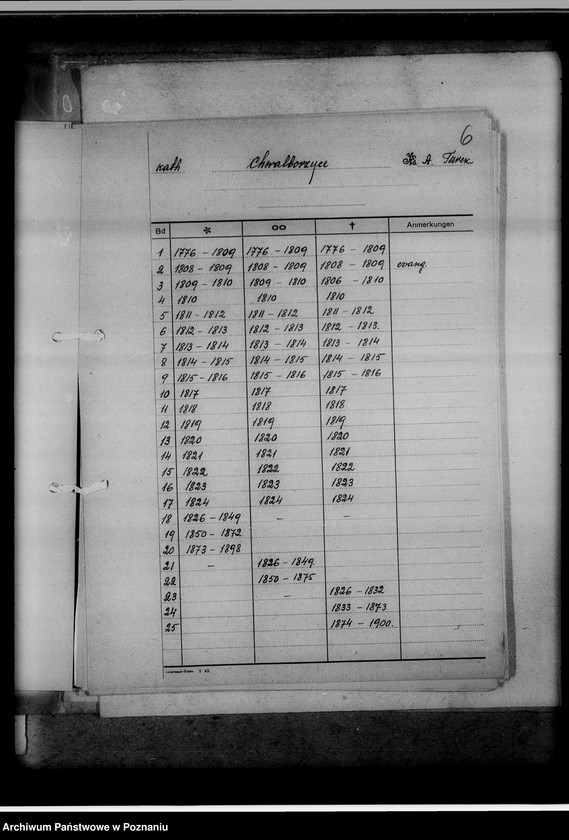 6
kath Chwalborzyce Ks. A. Turek
Bd * ∞ † Anmerkungen
1 1776 - 1809 1776 - 1809 1776 - 1809
2 1808 - 1809 1808 - 1809 1808 - 1809 evang.
3 1809 - 1810 1809 - 1810 1806 - 1810
4 1810 1810 1810
5 1811 - 1812 1811 - 1812 1811 - 1812
6 1812 - 1813 1812 - 1813 1812 - 1813.
7 1813 - 1814 1813 - 1814 1813 - 1814
8 1814 - 1815 1814 - 1815 1814 - 1815
9 1815 - 1816 1815 - 1816 1815 - 1816
10 1817 1817 1817
11 1818 1818 1818
12 1819 1819 1819
13 1820 1820 1820
14 1821 1821 1821
15 1822 1822 1822
16 1823 1823 1823
17 1824 1824 1824
18 1826 - 1849 - -
19 1850 - 1872
20 1873 - 1898
21 - 1826 - 1849
22 1850 - 1875
23 - 1826 - 1832
24 1833 - 1873
25 1874 - 1900.
Archiwum Państwowe w Poznaniu